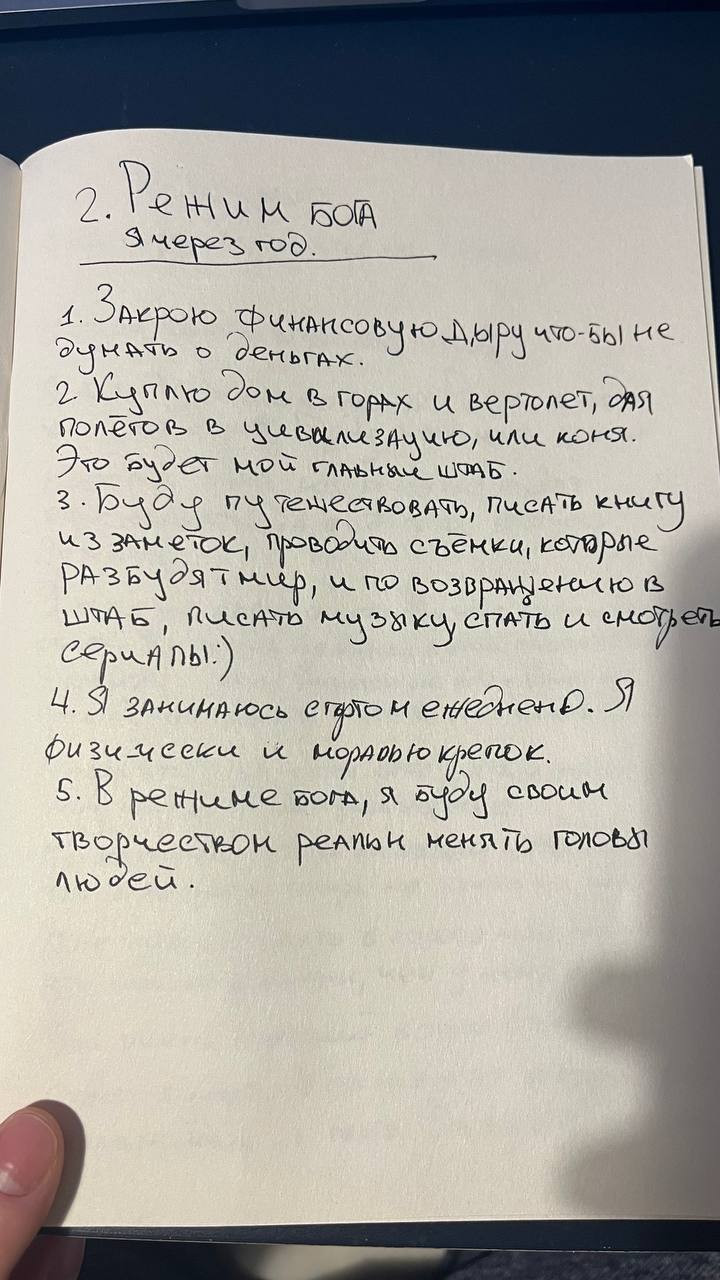 2. Режим БОГА
Я через год.
1. Закрою финансовую дыру что-бы не
думать о деньгах.
2 Куплю дом в горах и вертолет, для
полётов в цивилизацию, или коня.
Это будет мой главный штаб.
3. Буду путешествовать, писать книгу
из заметок, проводить съёмки, которые
разбудят мир, и по возвращению в
штаб, писать музыку, спать и смотреть
сериалы:)
4. Я занимаюсь спортом ежедневно. Я
физически и морально крепок.
5. В режиме бога, я буду своим
творчеством реальн менять головы
людей.